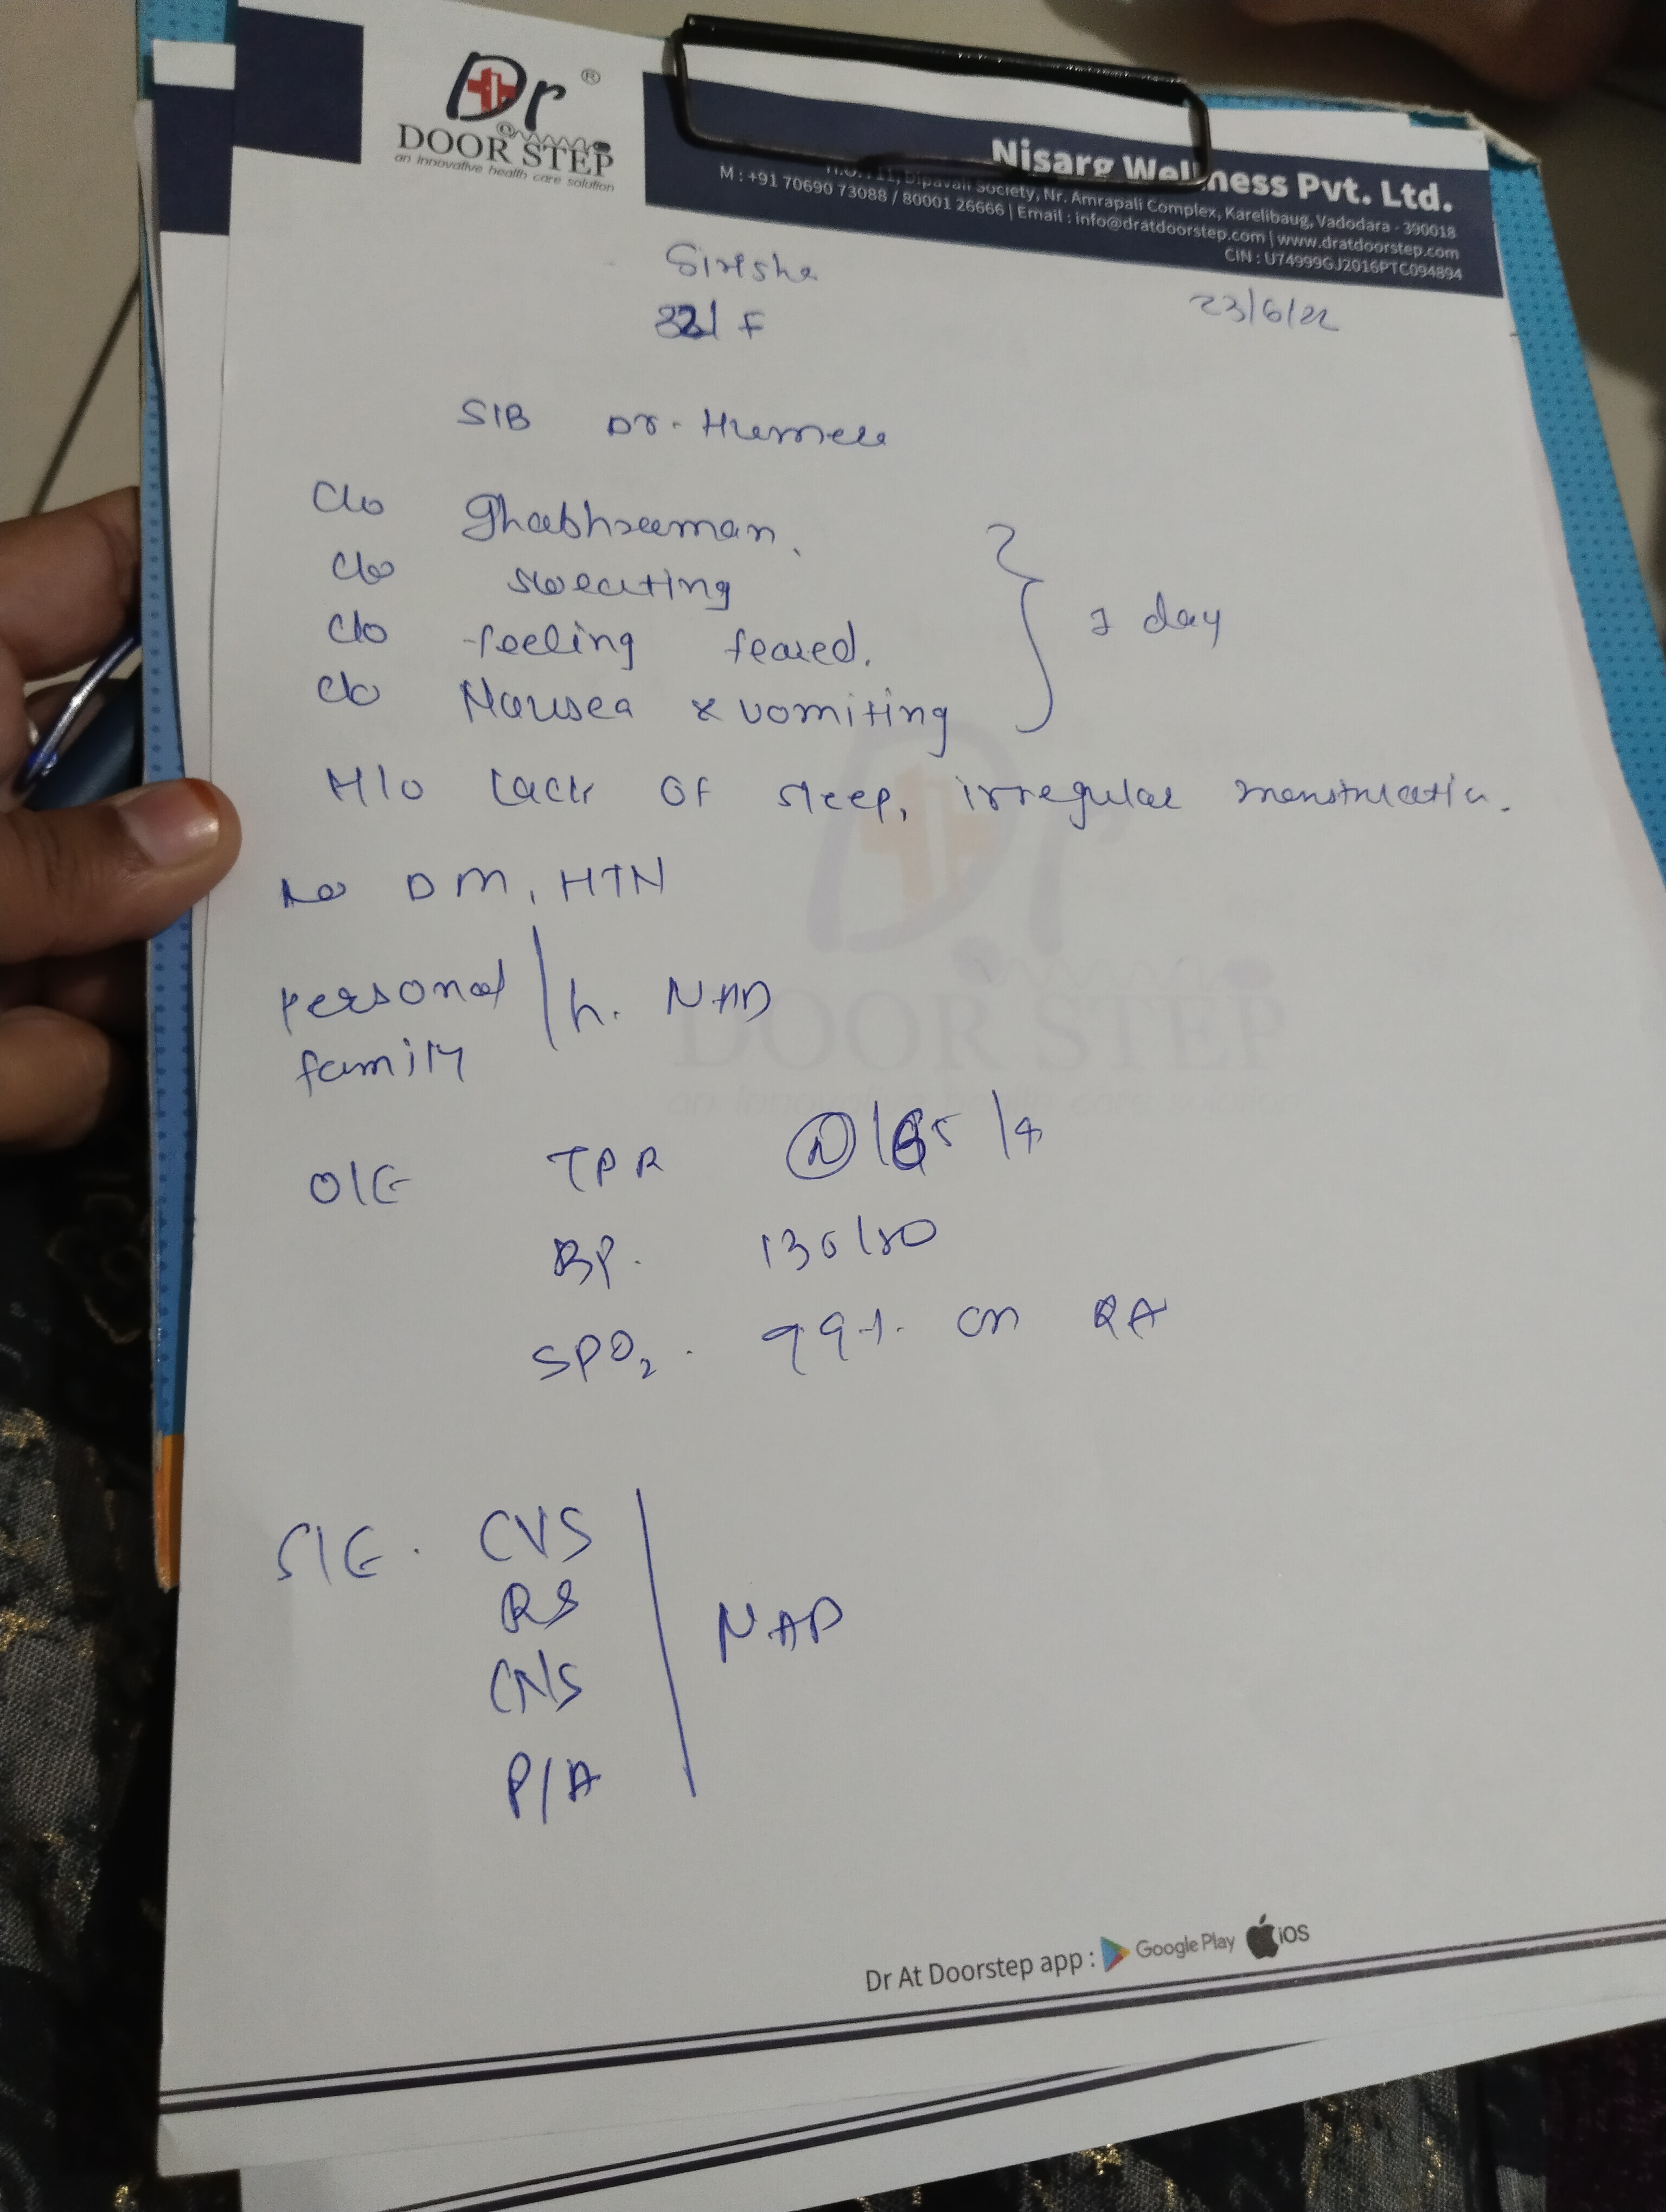 Dr ®
DOOR STEP
an innovative health care solution
Nisarg Wellness Pvt. Ltd.
H.O. : 11, Dipavali Society, Nr. Amrapali Complex, Karelibaug, Vadodara - 390018
M : +91 70690 73088 / 80001 26666 | Email : info@dratdoorstep.com | www.dratdoorstep.com
CIN : U74999GJ2016PTC094894
Sirisha
23/6/22
32/ F
S/B Dr.
c/o Ghabhraaman.
c/o sweating
c/o feeling feared.
c/o Nausea & vomiting
1 day
H/o Lack of sleep, irregular menstruation.
No DM, HTN
Personal
family
h. NAD
O/E TPR N / /
BP. 130/80
SPO2. 99% on RA
S/E. CVS
RS
CNS
P/A
NAD
Dr
DOOR STEP
an innovative health care solution
Dr At Doorstep app : Google Play iOS